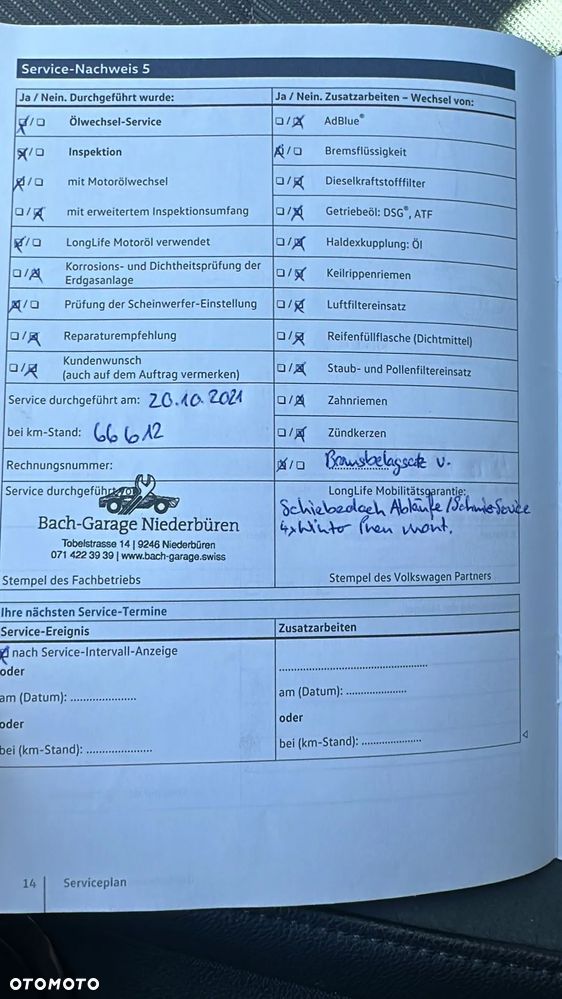 Service-Nachweis 5
Ja / Nein. Durchgeführt wurde:
Ölwechsel-Service
Inspektion
mit Motorölwechsel
mit erweitertem Inspektionsumfang
LongLife Motoröl verwendet
Korrosions- und Dichtheitsprüfung der
Erdgasanlage
Prüfung der Scheinwerfer-Einstellung
Reparaturempfehlung
Kundenwunsch
(auch auf dem Auftrag vermerken)
Service durchgeführt am: 20.10.2021
bei km-Stand: 66612
Rechnungsnummer:
Service durchgeführt
Bach-Garage Niederbüren
Tobelstrasse 14 | 9246 Niederbüren
071 422 39 39 | www.bach-garage.swiss
Stempel des Fachbetriebs
Ja / Nein. Zusatzarbeiten – Wechsel von:
AdBlue®
Bremsflüssigkeit
Dieselkraftstofffilter
Getriebeöl: DSG®, ATF
Haldexkupplung: Öl
Keilrippenriemen
Luftfiltereinsatz
Reifenfüllflasche (Dichtmittel)
Staub- und Pollenfiltereinsatz
Zahnriemen
Zündkerzen
v.
LongLife Mobilitätsgarantie:
Schiebedach Abläufe /
4x mont.
Stempel des Volkswagen Partners
Ihre nächsten Service-Termine
Service-Ereignis
nach Service-Intervall-Anzeige
oder
am (Datum): .....................
oder
bei (km-Stand): .....................
Zusatzarbeiten
................................................
am (Datum): ....................
oder
bei (km-Stand): ....................
14 Serviceplan
OTOMOTO